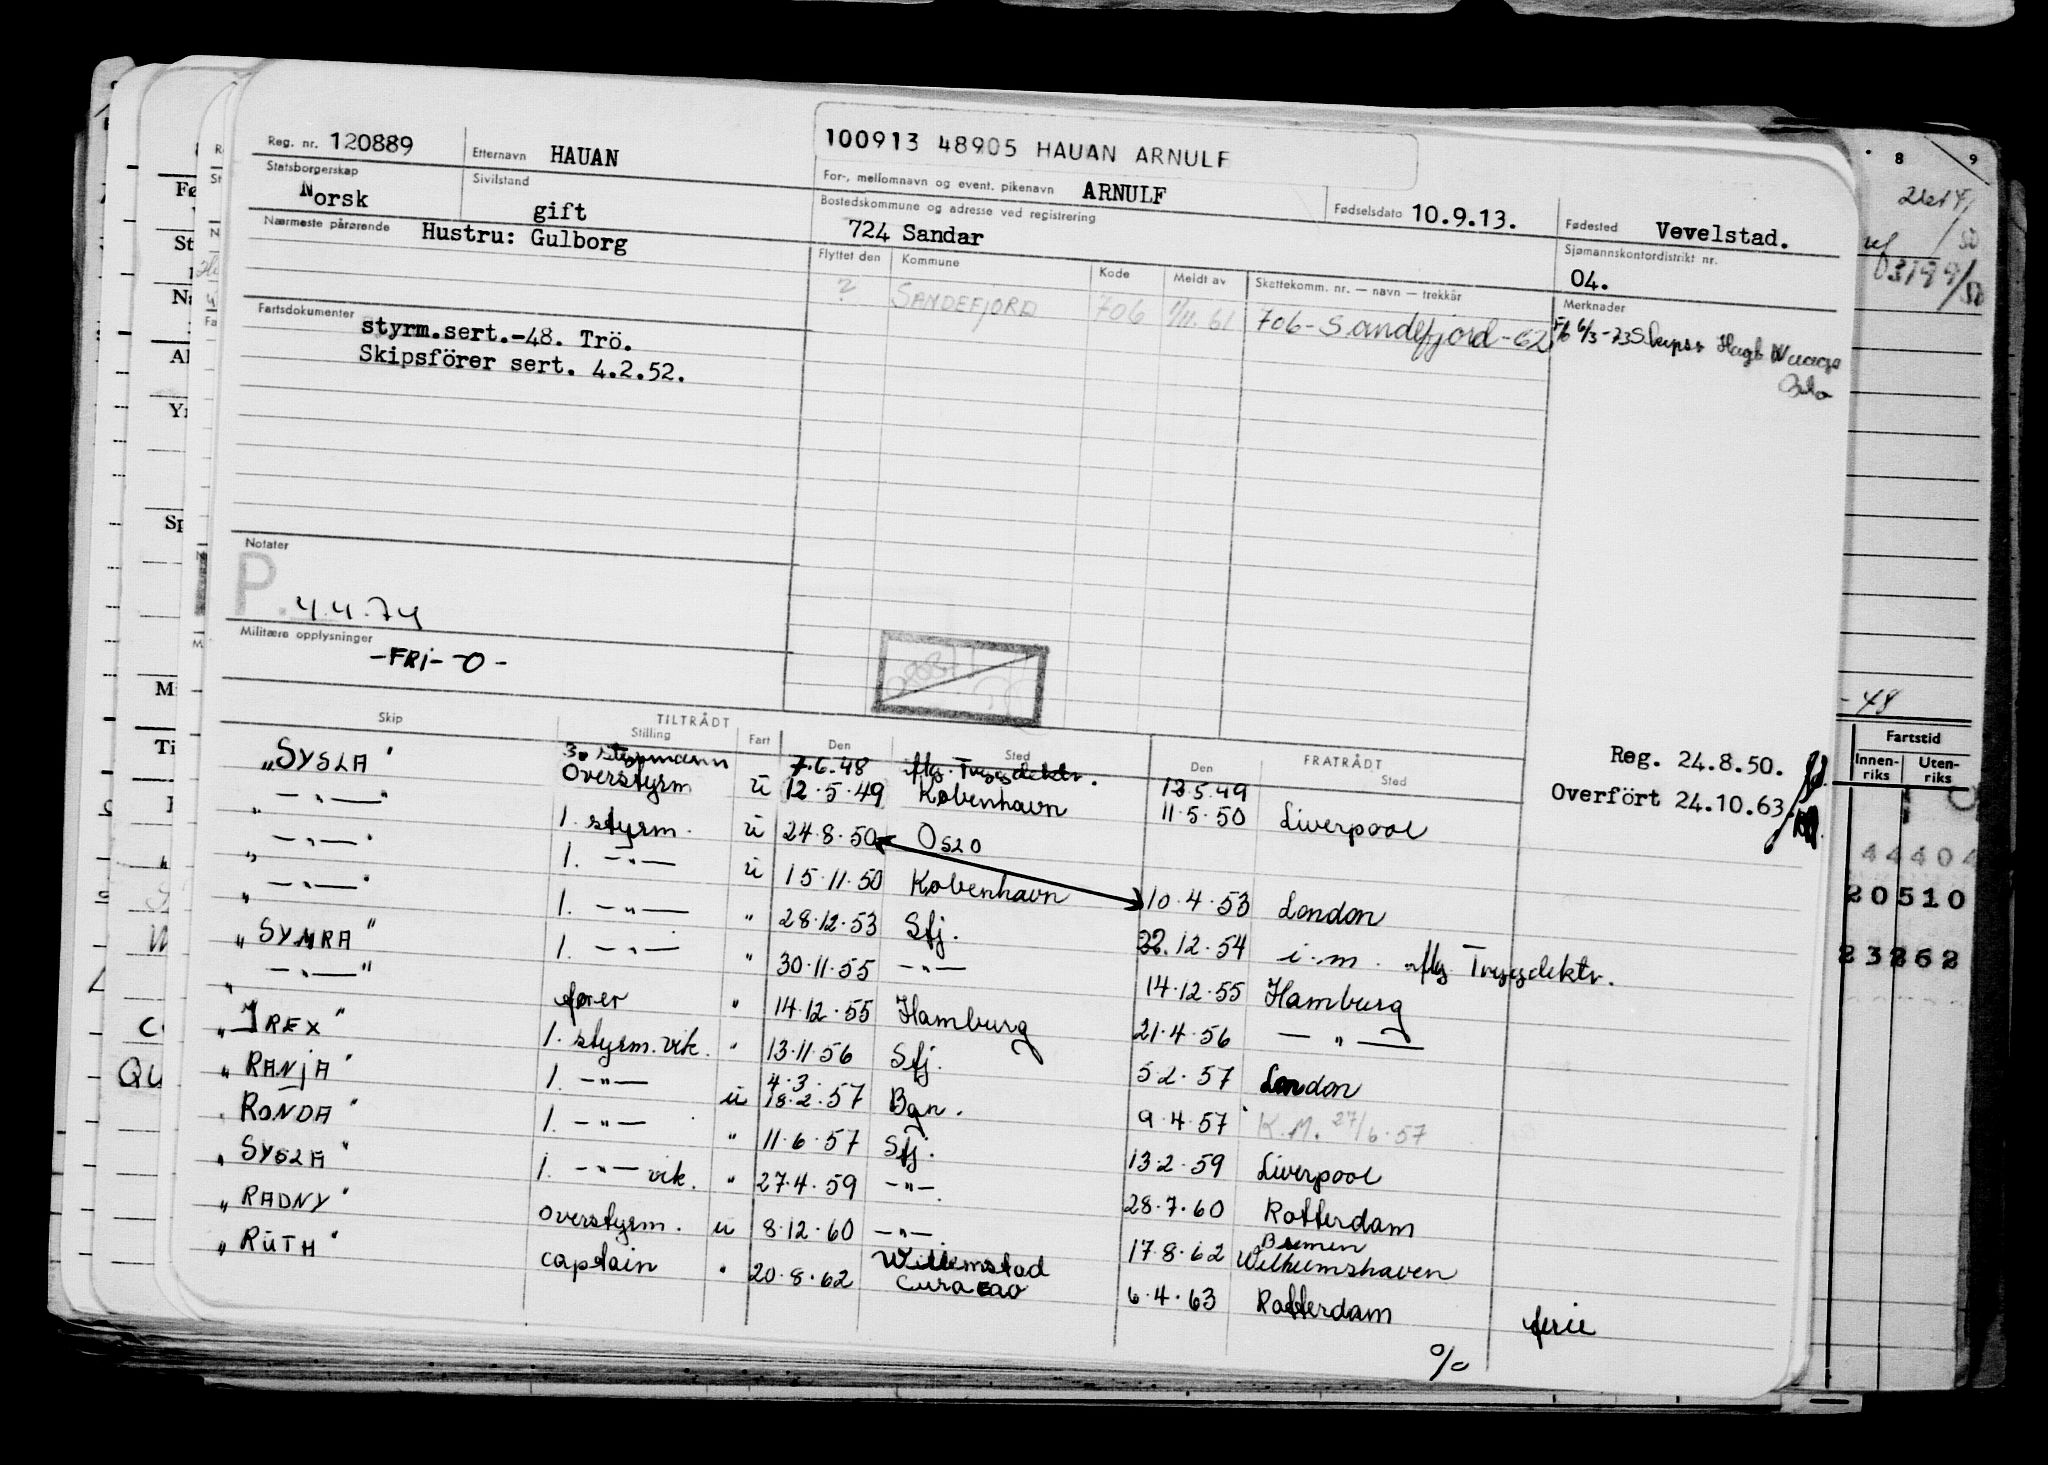 Reg. nr. 120889 Etternavn HAUAN 100913 48905 HAUAN ARNULF
For-, mellomnavn og event. pikenavn ARNULF
Fødselsdato 10.9.13. Fødested Vevelstad.
Statsborgerskap Norsk Sivilstand gift
Bostedskommune og adresse ved registrering 724 Sandar
Sjømannskontordistrikt nr. 04.
Nærmeste pårørende Hustru: Gulborg
Flyttet den Kommune Kode Meldt av Skattekomm. nr. — navn — trekkår Merknader
? SANDEFJORD 706 1/11.61 706-Sandefjord-62 6/3-73
Oslo
Fartsdokumenter styrm.sert.-48. Trö.
Skipsförer sert. 4.2.52.
Notater
P. 4.4.74
Militære opplysninger
-FRI-O-
Reg. 24.8.50.
Overfört 24.10.63.
TILTRÅDT FRATRÅDT
Skip Stilling Fart Den Sted Den Sted
"SYSLA" 3. styrmann 7.6.48 flg. Trygdektr. 12.5.49
" —"— " Overstyrm u 12.5.49 København 11.5.50 Liverpool
" —"— " 1. styrm. u 24.8.50 OSLO
" —"— " 1. —"— u 15.11.50 København 10.4.53 London
"SYMRA" 1. —"— " 28.12.53 Sfj. 22.12.54 i.m. flg Trygdektr.
" —"— " 1. —"— " 30.11.55 —"— 14.12.55 Hamburg
"IREX" fører " 14.12.55 Hamburg 21.4.56 —"—
"RANJA" 1. styrm. vik. " 13.11.56 Sfj. 5.2.57 London
"RONDA" 1. —"— u 4.3. 18.2.57 Bgn. 9.4.57 K.M. 27/6.57
"SYSLA" 1. —"— " 11.6.57 Sfj. 13.2.59 Liverpool
"RADNY" 1. —"— vik. " 27.4.59 —"—. 28.7.60 Rotterdam
"RUTH" overstyrm. u 8.12.60 —"—. 17.8.62 Bremen Wilhelmshaven
captain " 20.8.62 Willemstad Curacao 6.4.63 Rotterdam ferie
%
8 9
-48
Fartstid
Innen-riks Uten-riks
44404
20510
23262